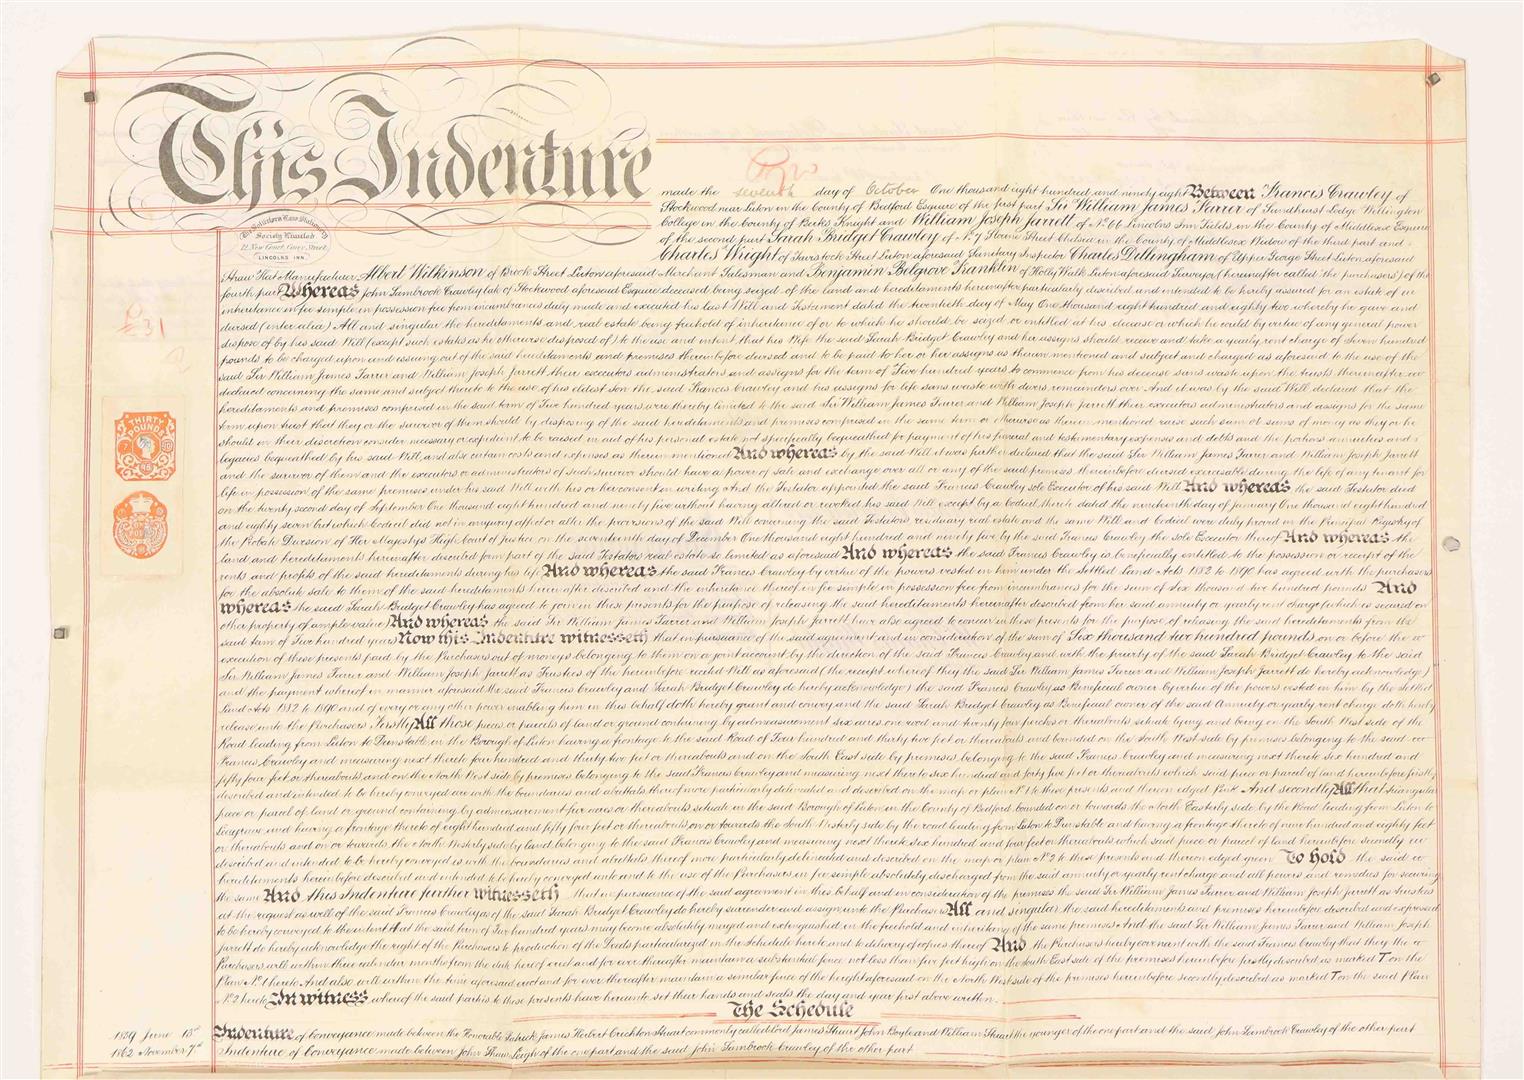 This Indenture
made the seventh day of October One thousand eight hundred and ninety eight Between Francis Crawley of
Stockwood near Luton in the County of Bedford Esquire of the first part Sir William James Farrer of Sandhurst Lodge Wellington
College in the County of Berks Knight and William Joseph Jarrett of No 66 Lincolns Inn Fields in the County of Middlesex Esquire
of the second part Sarah Bridget Crawley of No 7 Sloane Street Chelsea in the County of Middlesex Widow of the third part and
Charles Wright of Tavistock Street Luton aforesaid Sanitary Inspector Charles Dillingham of Upper George Street Luton aforesaid
The Solicitors Law Stationery
Society Limited
12 New Court Carey Street
LINCOLNS INN.
Straw Hat Manufacturer Albert Wilkinson of Brook Street Luton aforesaid Merchant Salesman and Benjamin Belgrove Franklin of Holly Walk Luton aforesaid Surveyor (hereinafter called the purchasers) of the
fourth part Whereas John Sambrook Crawley late of Stockwood aforesaid Esquire deceased being seized of the land and hereditaments hereinafter particularly described and intended to be hereby assured for an estate of
inheritance in fee simple in possession free from incumbrances duly made and executed his last Will and Testament dated the twentieth day of May One thousand eight hundred and eighty two whereby he gave and
devised (inter alia) All and singular the hereditaments and real estate being freehold of inheritance of or to which he should be seized or entitled at his decease or which he could by virtue of any general power
dispose of by his said Will (except such estates as he otherwise disposed of) to the use and intent that his Wife the said Sarah Bridget Crawley and her assigns should receive and take a yearly rent charge of Seven hundred
pounds to be charged upon and issuing out of the said hereditaments and premises thereinbefore devised and to be paid to her or her assigns as therein mentioned and subject and charged as aforesaid to the use of the
said Sir William James Farrer and William Joseph Jarrett their executors administrators and assigns for the term of Five hundred years to commence from his decease sans waste upon the trusts thereinafter
declared concerning the same and subject thereto to the use of his eldest son the said Francis Crawley and his assigns for life sans waste with divers remainders over And it was by the said Will declared that the
hereditaments and premises comprised in the said term of Five hundred years were thereby limited to the said Sir William James Farrer and William Joseph Jarrett their executors administrators and assigns for the same
term upon trust that they or the survivor of them should by disposing of the said hereditaments and premises comprised in the same term or otherwise as therein mentioned raise such sum or sums of money as they or he
should in their discretion consider necessary or expedient to be raised in aid of his personal estate not specifically bequeathed for payment of his funeral and testamentary expenses and debts and the portions annuities and
legacies bequeathed by his said Will and also certain costs and expenses as therein mentioned And whereas by the said Will it was further declared that the said Sir William James Farrer and William Joseph Jarrett
and the survivor of them and the executors or administrators of such survivor should have a power of sale and exchange over all or any of the said premises thereinbefore devised exercisable during the life of any tenant for
life in possession of the same premises under his said Will with his or her consent in writing And the Testator appointed the said Francis Crawley sole Executor of his said Will And whereas the said Testator died
on the twenty second day of September One thousand eight hundred and ninety five without having altered or revoked his said Will except by a Codicil thereto dated the nineteenth day of January One thousand eight hundred
and eighty seven but which Codicil did not in anyway affect or alter the provisions of the said Will concerning the said Testators residuary real estate and the same Will and Codicil were duly proved in the Principal Registry of
the Probate Division of Her Majestys High Court of Justice on the seventeenth day of December One thousand eight hundred and ninety five by the said Francis Crawley the sole Executor thereof And whereas the
land and hereditaments hereinafter described form part of the said Testators real estate so limited as aforesaid And whereas the said Francis Crawley is beneficially entitled to the possession or receipt of the
rents and profits of the said hereditaments during his life And whereas the said Francis Crawley by virtue of the powers vested in him under the Settled Land Acts 1882 to 1890 has agreed with the purchasers
for the absolute sale to them of the said hereditaments hereinafter described and the inheritance thereof in fee simple in possession free from incumbrances for the sum of Six thousand two hundred pounds And
whereas the said Sarah Bridget Crawley has agreed to join in these presents for the purpose of releasing the said hereditaments hereinafter described from her said annuity or yearly rent charge (which is secured on
other property of ample value) And whereas the said Sir William James Farrer and William Joseph Jarrett have also agreed to concur in these presents for the purpose of releasing the said hereditaments from the
said term of Five hundred years Now this Indenture witnesseth that in pursuance of the said agreement and in consideration of the sum of Six thousand two hundred pounds on or before the
execution of these presents paid by the Purchasers out of moneys belonging to them on a joint account by the direction of the said Francis Crawley and with the privity of the said Sarah Bridget Crawley to the said
Sir William James Farrer and William Joseph Jarrett as Trustees of the hereinbefore recited Will as aforesaid (the receipt whereof they the said Sir William James Farrer and William Joseph Jarrett do hereby acknowledge)
and the payment whereof in manner aforesaid the said Francis Crawley and Sarah Bridget Crawley do hereby acknowledge) the said Francis Crawley as Beneficial owner by virtue of the powers vested in him by the Settled
Land Acts 1882 to 1890 and of every or any other power enabling him in this behalf doth hereby grant and convey and the said Sarah Bridget Crawley as Beneficial owner of the said Annuity or yearly rent charge doth hereby
release unto the Purchasers Firstly All those pieces or parcels of land or ground containing by admeasurement six acres one rood and twenty four perches or thereabouts situate lying and being on the South West side of the
Road leading from Luton to Dunstable in the Borough of Luton having a frontage to the said Road of Four hundred and thirty two feet or thereabouts and bounded on the South West side by premises belonging to the said
Francis Crawley and measuring next thereto four hundred and thirty two feet or thereabouts and on the South East side by premises belonging to the said Francis Crawley and measuring next thereto Six hundred and
fifty four feet or thereabouts and on the North West side by premises belonging to the said Francis Crawley and measuring next thereto Six hundred and forty five feet or thereabouts which said piece or parcel of land hereinbefore firstly
described and intended to be hereby conveyed are with the boundaries and abuttals thereof more particularly delineated and described on the map or plan No 1 to these presents and thereon edged Pink And secondly All that triangular
piece or parcel of land or ground containing by admeasurement five acres or thereabouts situate in the said Borough of Luton in the County of Bedford bounded on or towards the North Easterly side by the Road leading from Luton to
Leagrave and having a frontage thereto of eight hundred and fifty four feet or thereabouts on or towards the South Westerly side by the road leading from Luton to Dunstable and having a frontage thereto of nine hundred and eighty feet
or thereabouts and on or towards the North Westerly side by land belonging to the said Francis Crawley and measuring next thereto Six hundred and four feet or thereabouts which said piece or parcel of land hereinbefore secondly
described and intended to be hereby conveyed is with the boundaries and abuttals thereof more particularly delineated and described on the map or plan No 2 to these presents and thereon edged green To hold the said
hereditaments hereinbefore described and intended to be hereby conveyed unto and to the use of the Purchasers in fee simple absolutely discharged from the said annuity or yearly rent charge and all powers and remedies for securing
the same And this Indenture further witnesseth that in pursuance of the said agreement in this behalf and in consideration of the premises the said Sir William James Farrer and William Joseph Jarrett as trustees
at the request as well of the said Francis Crawley as of the said Sarah Bridget Crawley do hereby surrender and assign unto the Purchasers All and singular the said hereditaments and premises hereinbefore described and expressed
to be hereby conveyed to the intent that the said term of Five hundred years may become absolutely merged and extinguished in the freehold and inheritance of the same premises And the said Sir William James Farrer and William Joseph
Jarrett do hereby acknowledge the right of the Purchasers to production of the Deeds particularized in the Schedule hereto and to delivery of copies thereof And the Purchasers hereby covenant with the said Francis Crawley that they the
Purchasers will within three calendar months from the date hereof erect and for ever thereafter maintain a substantial fence not less than five feet high on the South East side of the premises hereinbefore firstly described as marked T on the
Plan No 1 hereto And also will within the time aforesaid erect and for ever thereafter maintain a similar fence of the height aforesaid on the North West side of the premises hereinbefore secondly described as marked T on the said Plan
No 2 hereto In witness whereof the said parties to these presents have hereunto set their hands and seals the day and year first above written.
The Schedule
1829 June 13th Indenture of Conveyance made between the Honorable Patrick James Herbert Crichton Stuart commonly called Lord James Stuart John Boyle and William Stuart the younger of the one part and the said John Sambrook Crawley of the other part
1862 November 7th Indenture of Conveyance made between John Shaw Leigh of the one part and the said John Sambrook Crawley of the other part
£31
THIRTY
POUNDS